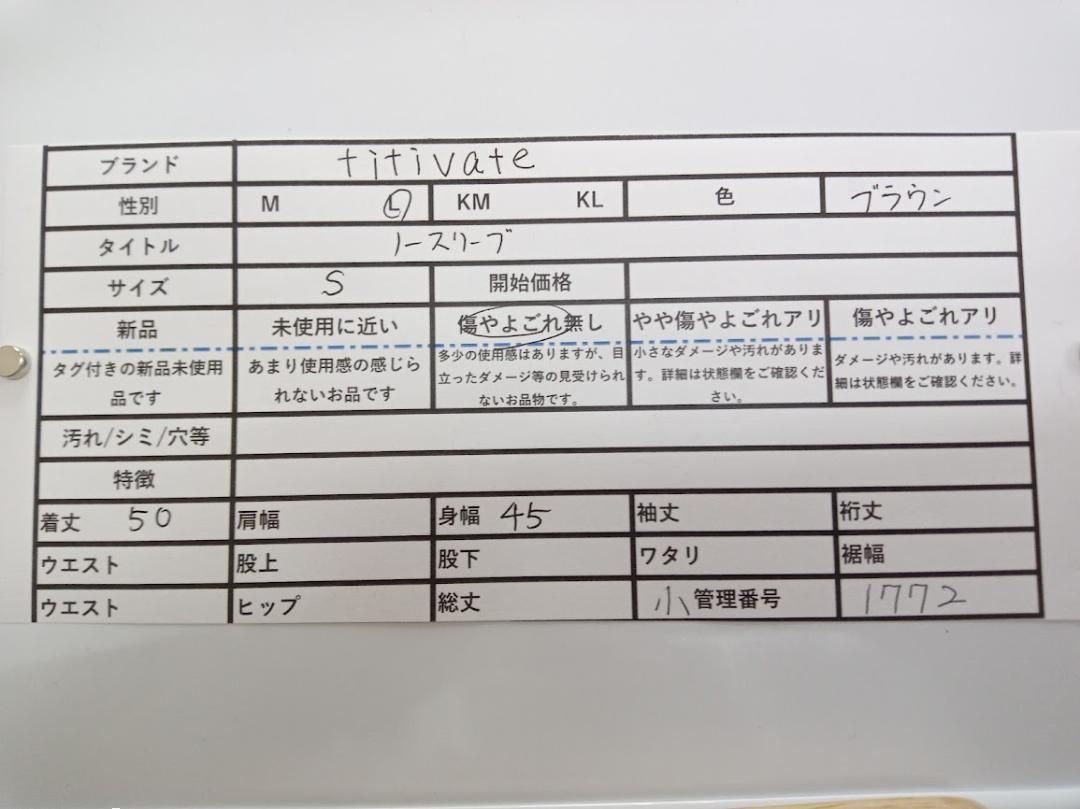 ブランド titivate
性別 M L KM KL 色 ブラウン
タイトル ノースリーブ
サイズ S 開始価格
新品 未使用に近い 傷やよごれ無し やや傷やよごれアリ 傷やよごれアリ
タグ付きの新品未使用
品です
あまり使用感の感じら
れないお品です
多少の使用感はありますが、目
立ったダメージ等の見受けられ
ないお品物です。
小さなダメージや汚れがありま
す。詳細は状態欄をご確認くだ
さい。
ダメージや汚れがあります。詳
細は状態欄をご確認ください。
汚れ/シミ/穴等
特徴
着丈 50 肩幅 身幅 45 袖丈 裄丈
ウエスト 股上 股下 ワタリ 裾幅
ウエスト ヒップ 総丈 小 管理番号 1772